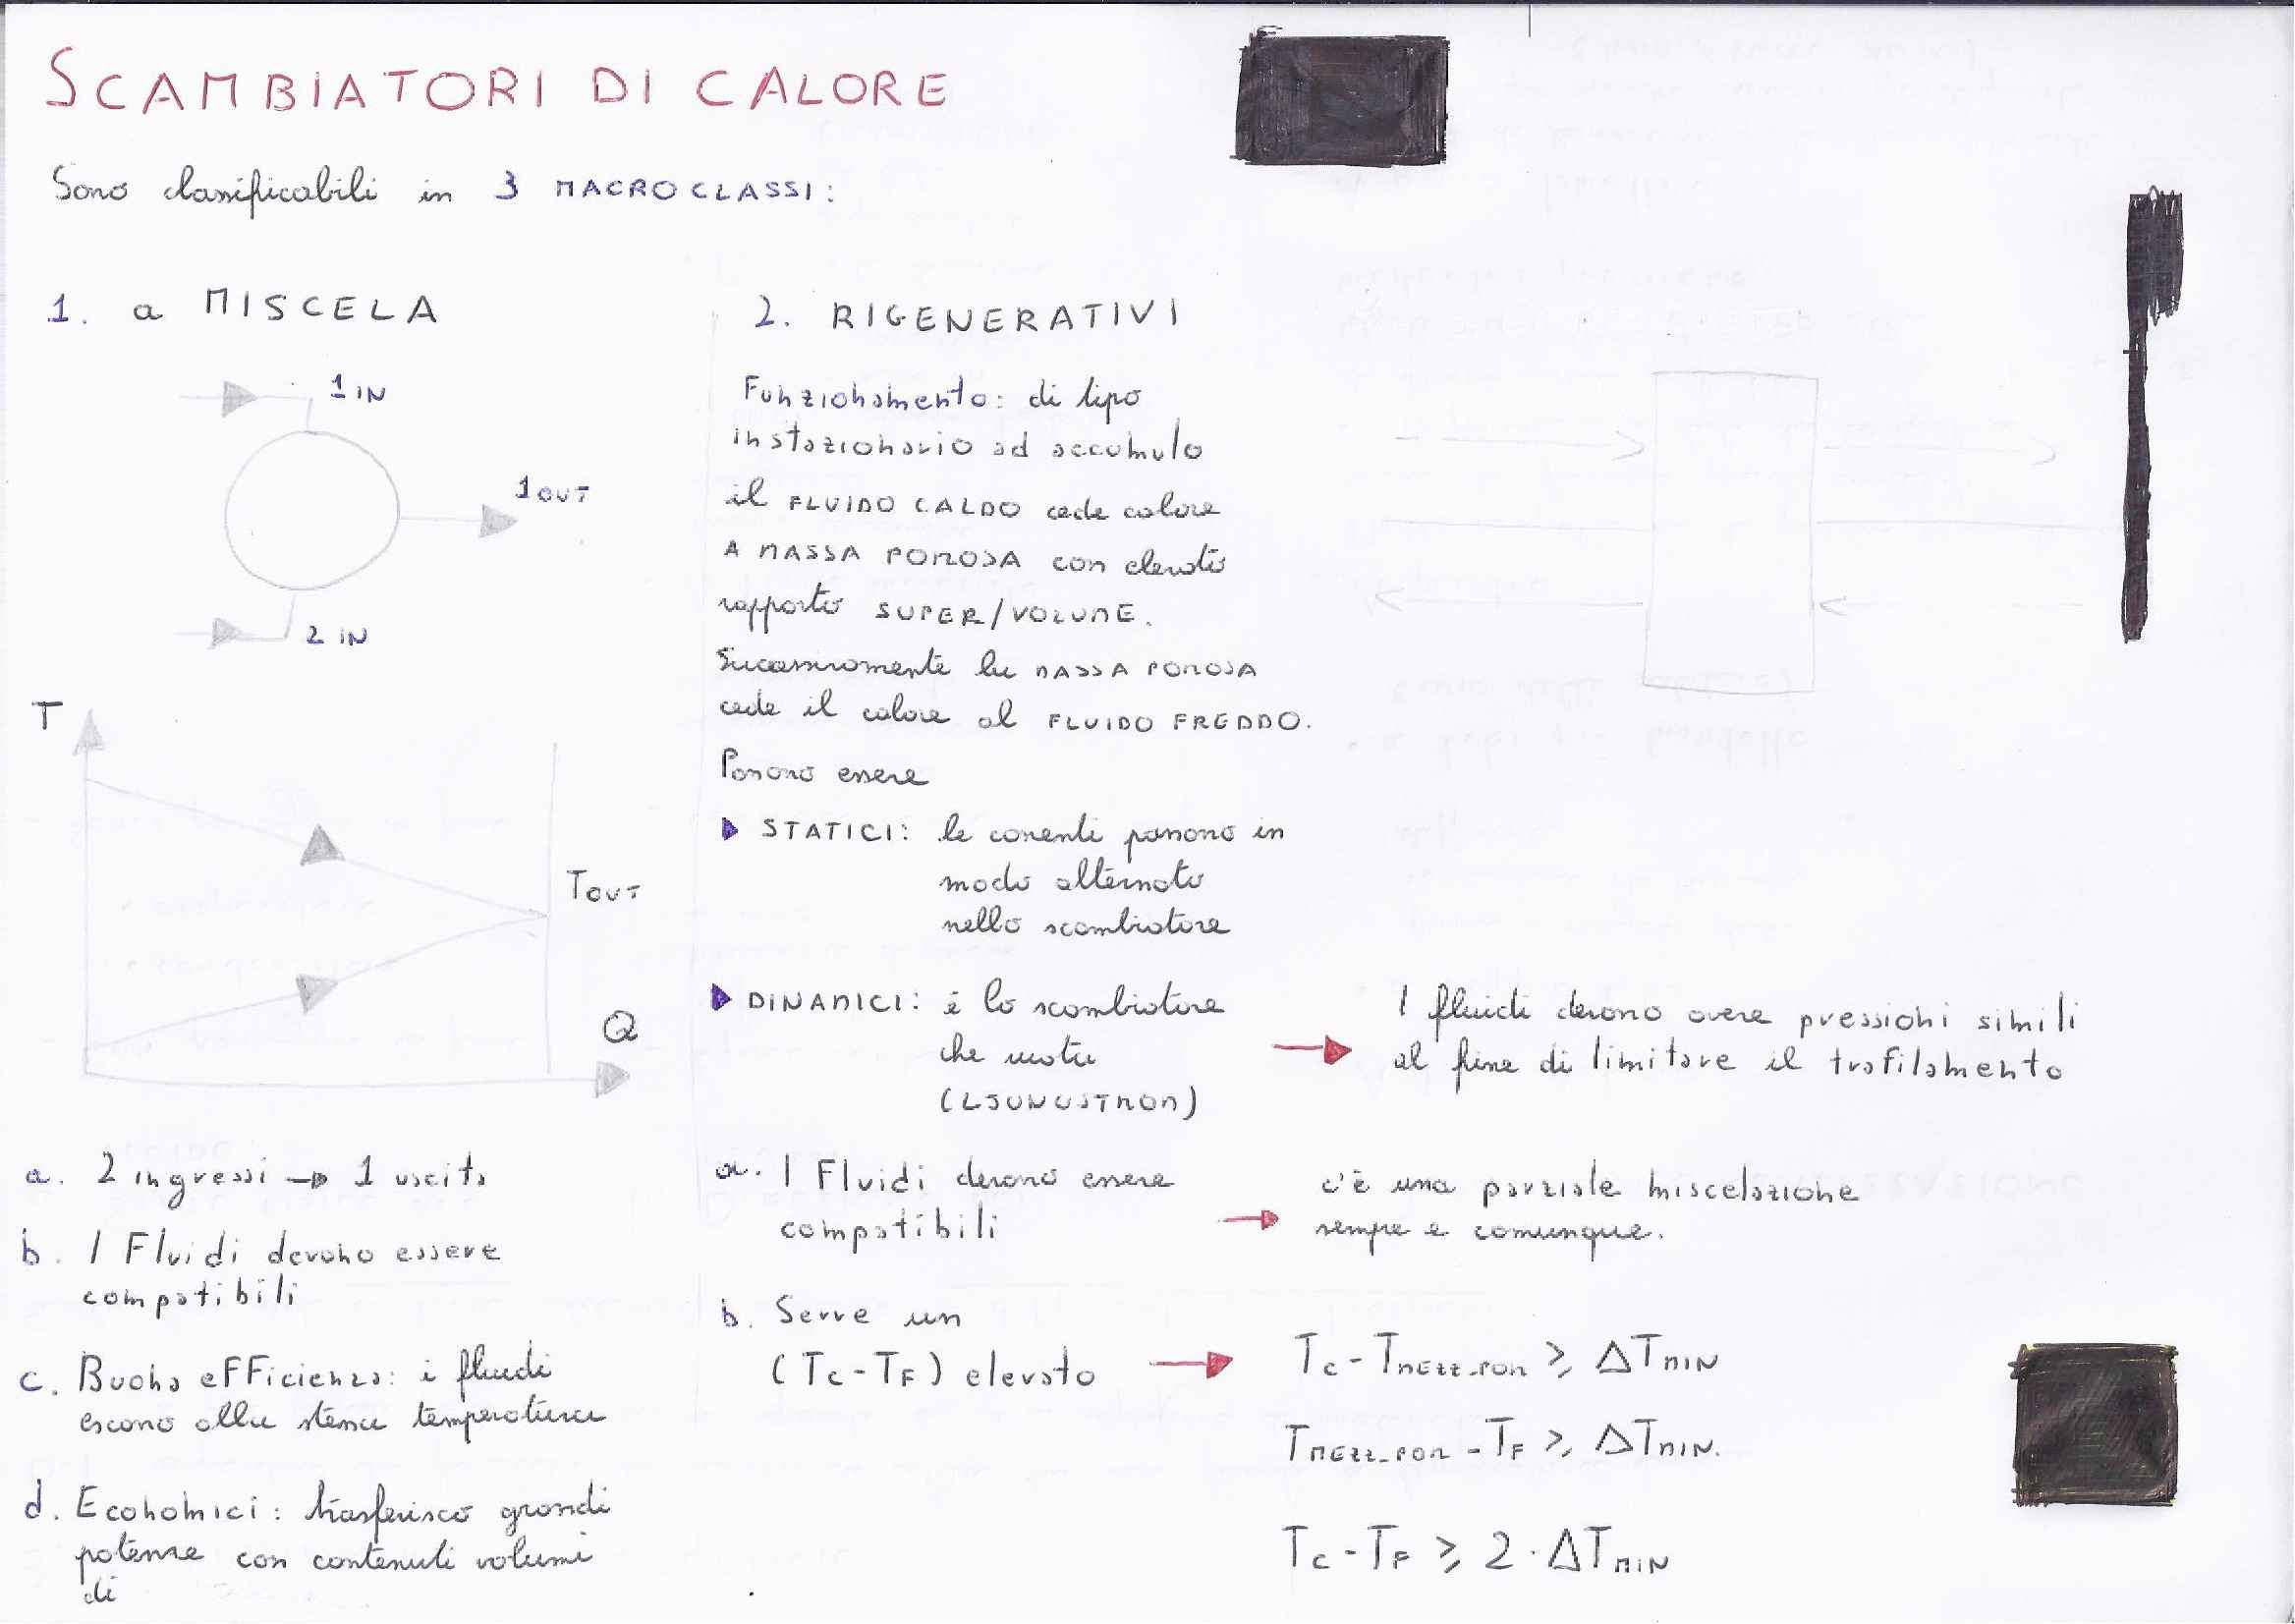 SCAMBIATORI DI CALORE
Sono classificabili in 3 MACROCLASSI:
1. a MISCELA
1 IN
1 OUT
2 IN
T
TOUT
Q
a. 2 ingressi → 1 uscita
b. I Fluidi devono essere
compatibili
c. Buona efficienza: i fluidi
escono alla stessa temperatura
d. Economici: trasferisco grandi
potenze con contenuti volumi
di
2. RIGENERATIVI
Funzionamento: di tipo
instazionario ad accumulo
il FLUIDO CALDO cede calore
A MASSA POROSA con elevato
rapporto SUPER/VOLUME.
Successivamente la MASSA POROSA
cede il calore al FLUIDO FREDDO.
Possono essere
STATICI: le correnti passano in
modo alternato
nello scambiatore
DINAMICI: è lo scambiatore
che ruota
→ I fluidi devono avere pressioni simili
al fine di limitare il trafilamento
a. I Fluidi devono essere
compatibili
→ c'è una parziale miscelazione
sempre e comunque.
b. Serve un
(TC-TF) elevato
→ TC - TMEZZ_POR ≥ ΔTMIN
TMEZZ_POR - TF ≥ ΔTMIN.
TC - TF ≥ 2 · ΔTMIN